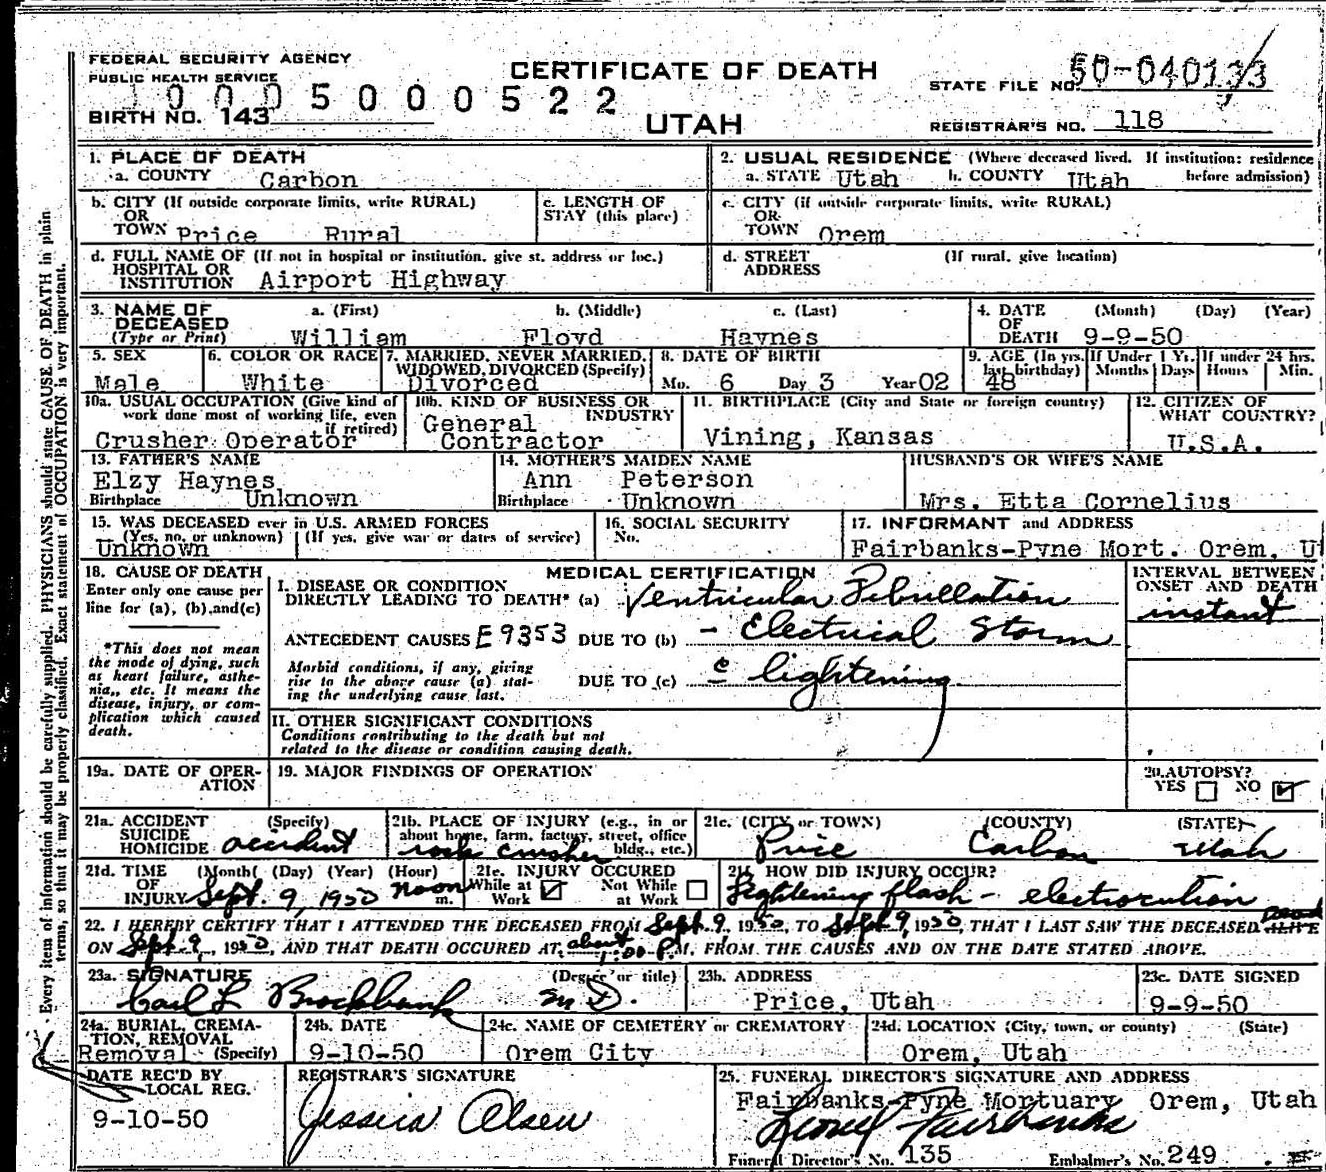 FEDERAL SECURITY AGENCY
PUBLIC HEALTH SERVICE
CERTIFICATE OF DEATH
UTAH
1000500522
BIRTH NO. 143
STATE FILE NO. 50-040133
REGISTRAR'S NO. 118
Every item of information should be carefully supplied. PHYSICIANS should state CAUSE OF DEATH in plain
terms, so that it may be properly classified. Exact statement of OCCUPATION is very important.
1. PLACE OF DEATH
a. COUNTY Carbon
2. USUAL RESIDENCE (Where deceased lived. If institution: residence
a. STATE Utah b. COUNTY Utah before admission)
b. CITY (If outside corporate limits, write RURAL)
OR
TOWN Price Rural
c. LENGTH OF
STAY (this place)
c. CITY (if outside corporate limits, write RURAL)
OR
TOWN Orem
d. FULL NAME OF (If not in hospital or institution, give st. address or loc.)
HOSPITAL OR
INSTITUTION Airport Highway
d. STREET (If rural, give location)
ADDRESS
3. NAME OF a. (First) b. (Middle) c. (Last)
DECEASED
(Type or Print) William Floyd Haynes
4. DATE (Month) (Day) (Year)
OF
DEATH 9-9-50
5. SEX
Male
6. COLOR OR RACE
White
7. MARRIED, NEVER MARRIED,
WIDOWED, DIVORCED (Specify)
Divorced
8. DATE OF BIRTH
Mo. 6 Day 3 Year 02
9. AGE (In yrs.
last birthday)
48
If Under 1 Yr.
Months Days
If under 24 hrs.
Hours Min.
10a. USUAL OCCUPATION (Give kind of
work done most of working life, even
if retired)
Crusher Operator
10b. KIND OF BUSINESS OR
INDUSTRY
General
Contractor
11. BIRTHPLACE (City and State or foreign country)
Vining, Kansas
12. CITIZEN OF
WHAT COUNTRY?
U.S.A.
13. FATHER'S NAME
Elzy Haynes
Birthplace Unknown
14. MOTHER'S MAIDEN NAME
Ann Peterson
Birthplace Unknown
HUSBAND'S OR WIFE'S NAME
Mrs. Etta Cornelius
15. WAS DECEASED ever in U.S. ARMED FORCES
(Yes, no, or unknown) (If yes, give war or dates of service)
Unknown
16. SOCIAL SECURITY
No.
17. INFORMANT and ADDRESS
Fairbanks-Pyne Mort. Orem, Ut
18. CAUSE OF DEATH
Enter only one cause per
line for (a), (b), and (c)
*This does not mean
the mode of dying, such
as heart failure, asthe-
nia,, etc. It means the
disease, injury, or com-
plication which caused
death.
MEDICAL CERTIFICATION
I. DISEASE OR CONDITION
DIRECTLY LEADING TO DEATH* (a) Ventricular Fibrillation
ANTECEDENT CAUSES E9353 DUE TO (b) - Electrical Storm
Morbid conditions, if any, giving
rise to the above cause (a) stat-
ing the underlying cause last.
DUE TO (c) c lightening
II. OTHER SIGNIFICANT CONDITIONS
Conditions contributing to the death but not
related to the disease or condition causing death.
INTERVAL BETWEEN
ONSET AND DEATH
instant
19a. DATE OF OPER-
ATION
19. MAJOR FINDINGS OF OPERATION
20. AUTOPSY?
YES NO
21a. ACCIDENT (Specify)
SUICIDE
HOMICIDE accident
21b. PLACE OF INJURY (e.g., in or
about home, farm, factory, street, office
bldg., etc.)
rock crusher
21c. (CITY or TOWN) (COUNTY) (STATE)
Price Carbon Utah
21d. TIME (Month) (Day) (Year) (Hour)
OF
INJURY Sept. 9, 1950 noon m.
21e. INJURY OCCURED
While at Work Not While at Work
21f. HOW DID INJURY OCCUR?
Lightening flash - electrocution
22. I HEREBY CERTIFY THAT I ATTENDED THE DECEASED FROM Sept. 9, 1950, TO Sept 9, 1950, THAT I LAST SAW THE DECEASED ALIVE dead
ON Sept. 9, 1950, AND THAT DEATH OCCURED AT about 1:00 P.M. FROM THE CAUSES AND ON THE DATE STATED ABOVE.
23a. SIGNATURE (Degree or title)
Carl L Brockbank M.D.
23b. ADDRESS
Price, Utah
23c. DATE SIGNED
9-9-50
24a. BURIAL, CREMA-
TION, REMOVAL
Removal (Specify)
24b. DATE
9-10-50
24c. NAME OF CEMETERY or CREMATORY
Orem City
24d. LOCATION (City, town, or county) (State)
Orem, Utah
DATE REC'D BY
LOCAL REG.
9-10-50
REGISTRAR'S SIGNATURE
Jessica Olsen
25. FUNERAL DIRECTOR'S SIGNATURE AND ADDRESS
Fairbanks-Pyne Mortuary Orem, Utah
Lionel Fairbanks
Funeral Director's No. 135 Embalmer's No. 249